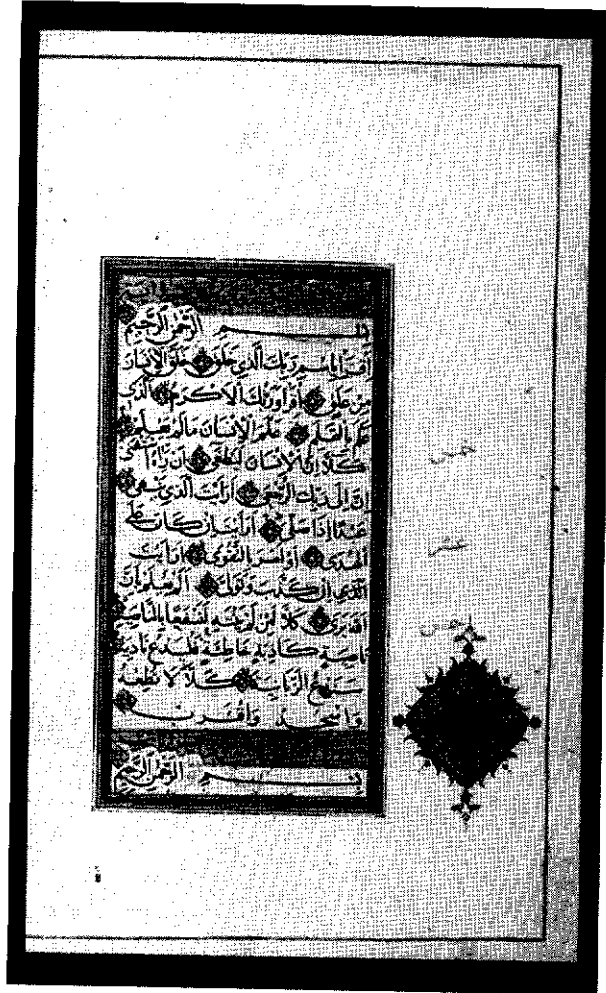 بسم الله الرحمن الرحيم
اقْرَأْ بِاسْمِ رَبِّكَ الَّذِي خَلَقَ خَلَقَ الْإِنْسَانَ
مِنْ عَلَقٍ اقْرَأْ وَرَبُّكَ الْأَكْرَمُ الَّذِي
عَلَّمَ بِالْقَلَمِ عَلَّمَ الْإِنْسَانَ مَا لَمْ يَعْلَمْ
كَلَّا إِنَّ الْإِنْسَانَ لَيَطْغَى أَنْ رَآهُ
إِنَّ إِلَى رَبِّكَ الرُّجْعَى أَرَأَيْتَ الَّذِي يَنْهَى
عَبْدًا إِذَا صَلَّى أَرَأَيْتَ إِنْ كَانَ عَلَى
الْهُدَى أَوْ أَمَرَ بِالتَّقْوَى أَرَأَيْتَ
إِنْ كَذَّبَ وَتَوَلَّى أَلَمْ يَعْلَمْ بِأَنَّ
اللَّهَ يَرَى كَلَّا لَئِنْ لَمْ يَنْتَهِ لَنَسْفَعًا بِالنَّاصِيَةِ
نَاصِيَةٍ كَاذِبَةٍ خَاطِئَةٍ فَلْيَدْعُ نَادِيَهُ
سَنَدْعُ الزَّبَانِيَةَ كَلَّا لَا تُطِعْهُ
وَاسْجُدْ وَاقْتَرِبْ
بسم الله الرحمن الرحيم
خمس
عشر
خمس